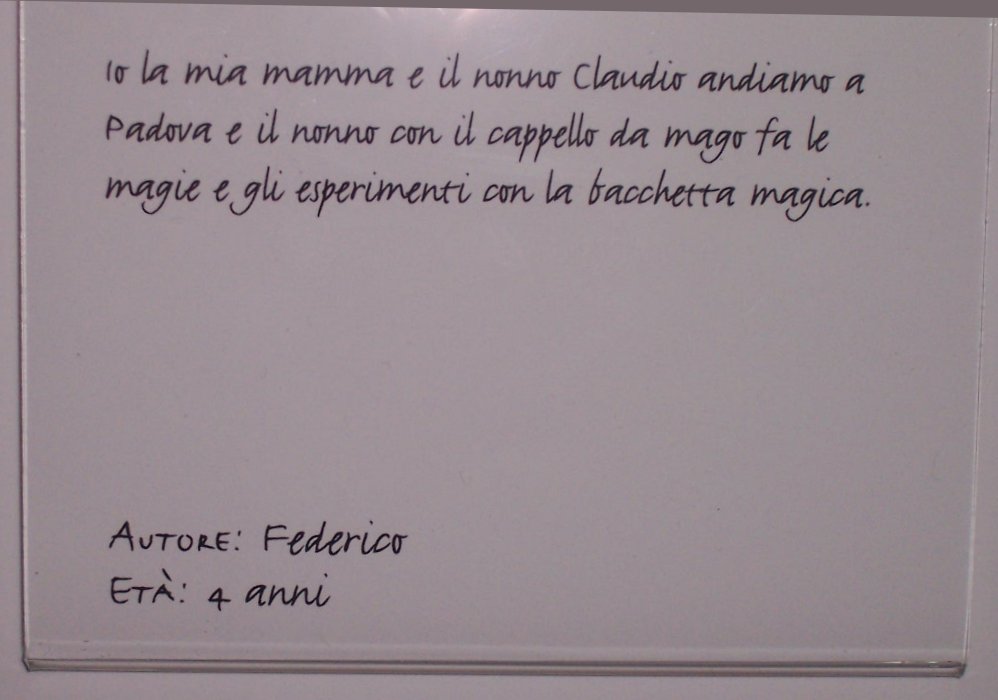 Io la mia mamma e il nonno Claudio andiamo a
Padova e il nonno con il cappello da mago fa le
magie e gli esperimenti con la bacchetta magica.
AUTORE: Federico
ETÀ: 4 anni